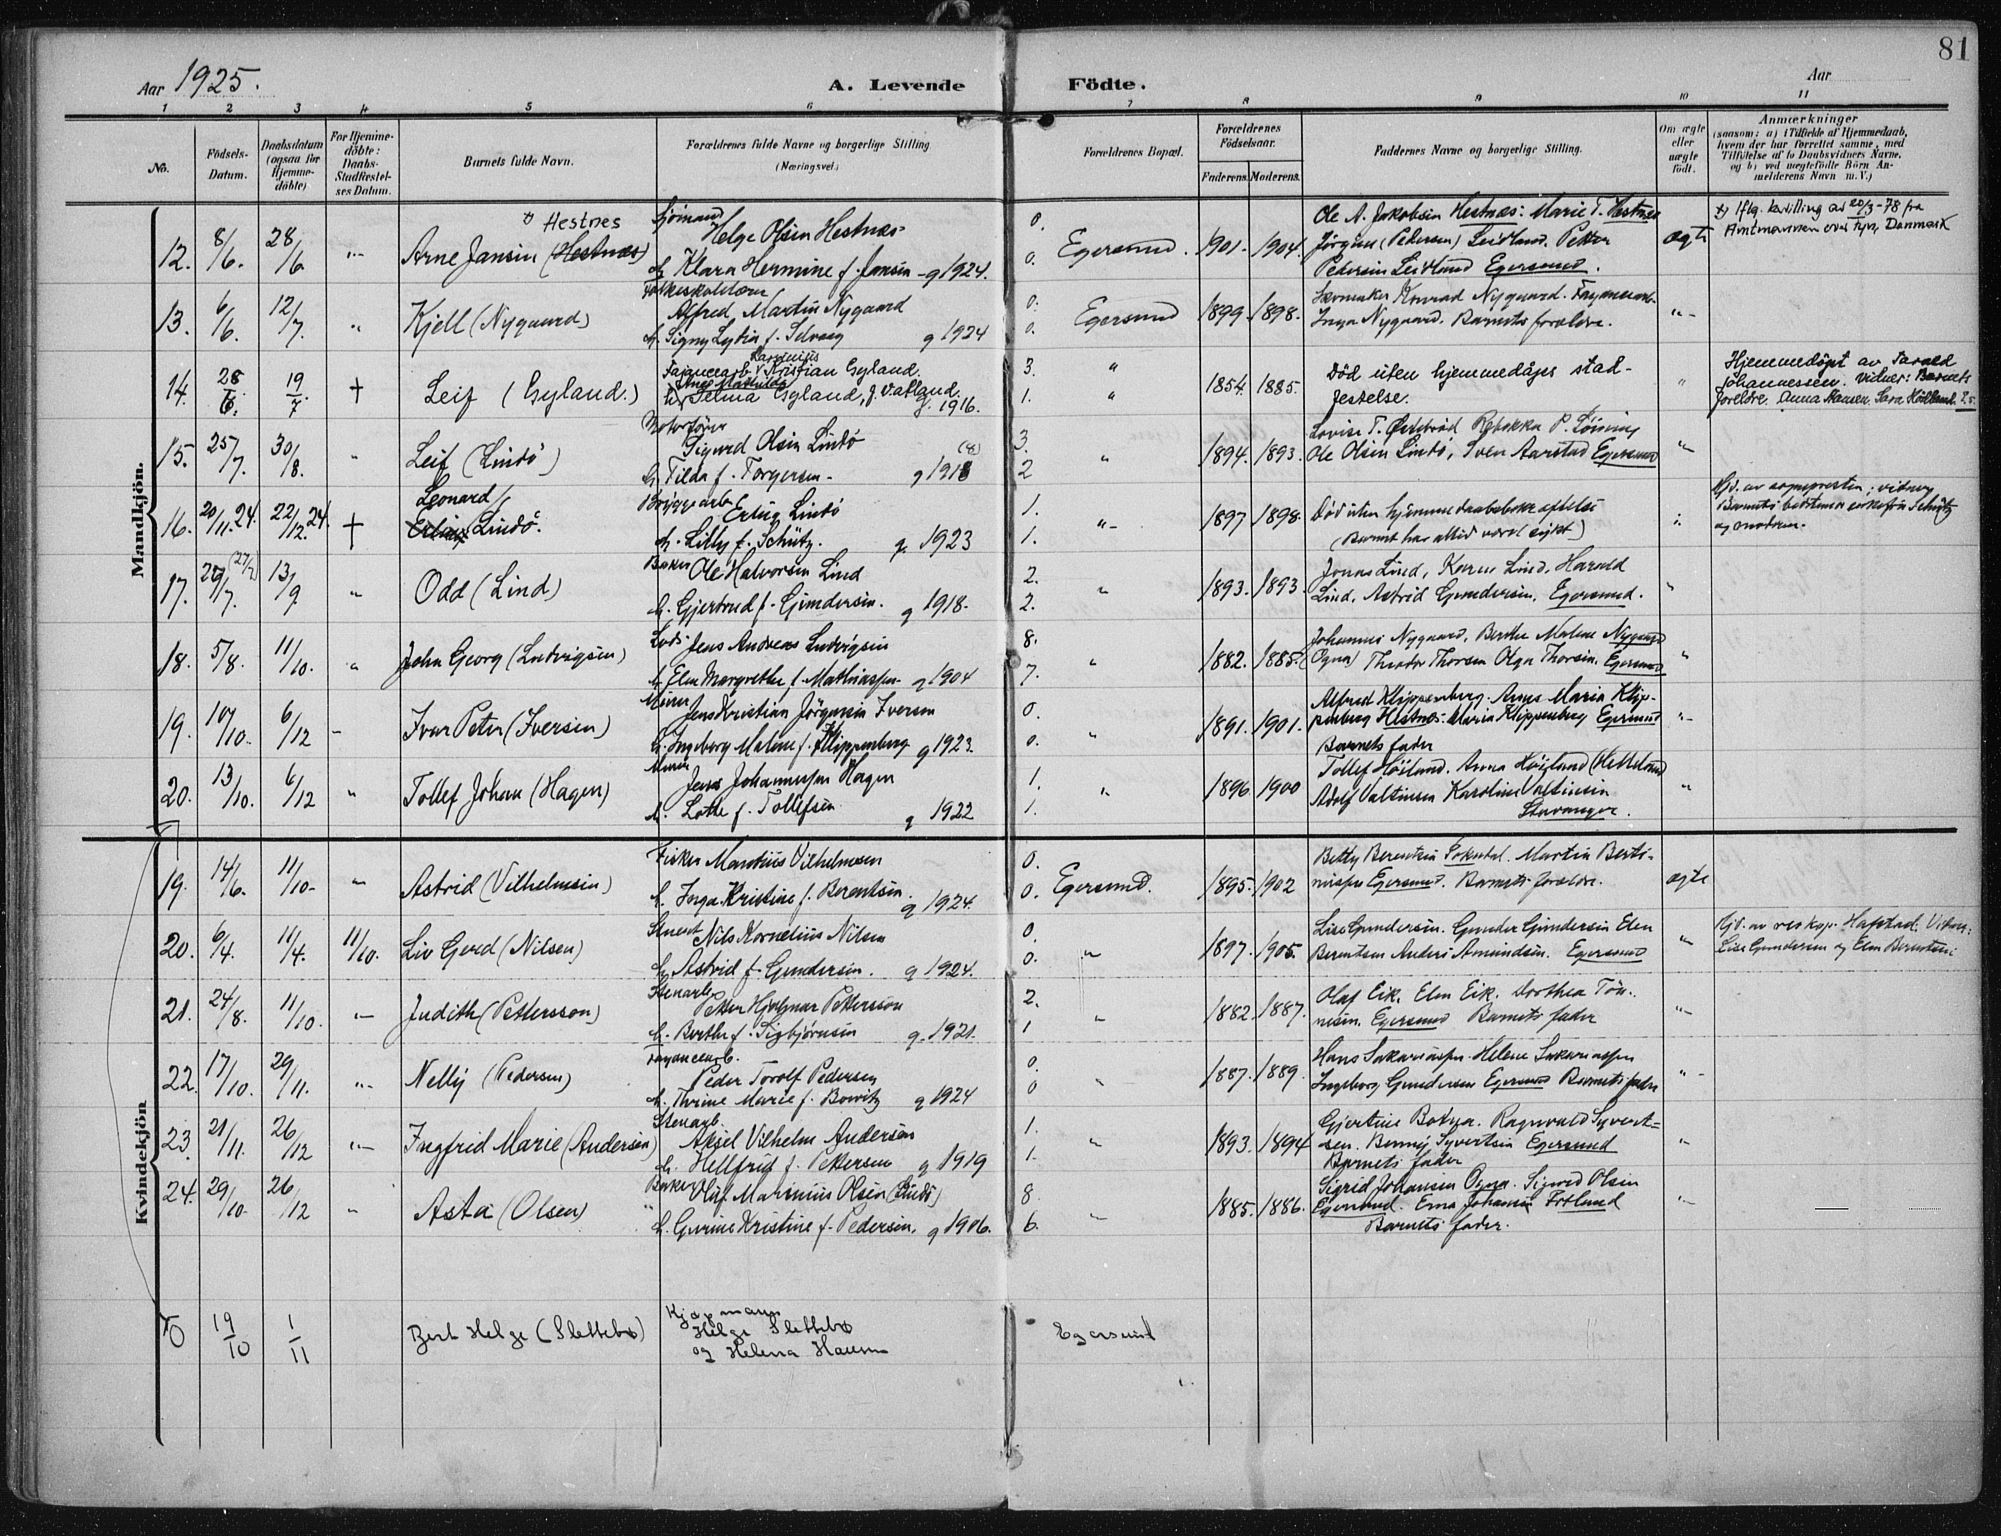 81
Aar 1925.
A. Levende Födte.
Aar
1 2 3 4 5 6 7 8 9 10 11
No.
Födsels-
Datum.
Daabsdatum
(ogsaa for
Hjemme-
döbte)
For Hjemme-
döbte:
Daabs-
Stadfæstel-
ses Datum.
Barnets fulde Navn.
Forældrenes fulde Navne og borgerlige Stilling
(Næringsvei.)
Forældrenes Bopæl.
Forældrenes
Födselsaar.
Faderens. Moderens.
Faddernes Navne og borgerlige Stilling.
Om ægte
eller
uægte
födt.
Anmærkninger
(saasom: a) i Tilfælde af Hjemmedaab,
hvem der har forrettet samme, med
Tilföielse af to Daabsvidners Navne,
og b) ved uægtefödte Börn An-
melderens Navn m. V.)
Mandkjön.
12. 8/6. 28/6 "-
x) Hestnes
Arne Jansen (Hestnæs)
Sjömand
Helge Olsen Hestnæs
h. Klara Hermine f. Jansen - g 1924.
0.
0.
Egersund. 1901. 1904.
Ole A. Jakobsen Hestnæs: Marie T. Hestnæs
Jörgine (Pedersen) Leidland. Petter
Pedersen Leidland Egersund.
ægte
x) Iflg. kvittering av 20/3-78 fra
Amtmannen over Fyn, Danmark
13. 6/6. 12/7 " Kjell (Nygaard)
Folkeskolelærer
Alfred Martin Nygaard
h. Signy Lydia f. Selvaag g 1924
0.
0.
Egersund 1899. 1898.
Skomaker Konrad Nygaard. Fayancearb.
Inga Nygaard. Barnets forældre.
"-
14. 28/6. 19/7 + Leif (Gyland.)
Rasmus
Fajancearb. Kristian Gyland.
Inga Mathilde
h. Selma Gyland, f. Vatland.
g. 1916.
3.
1.
"
"
1854. 1885.
Död uten hjemmedåps stad-
festelse.
"
Hjemmedöpt av Tarald
Johannessen. Vidner: Barnets
foreldre. Anna Hansen. Sara
15. 25/7. 30/8. " Leif (Lindö)
Motorförer
Sigurd Olsen Lindö
h. Tilda f. Torgersen - g 1918 (8)
3.
2
" 1894. 1893.
Lovise T. Rebekka P.
Ole Olsen Lindö, Sven Aarstad Egersund
"
16. 20/11.24. 22/12.24 +
Leonard
Erling Lindö.
Bryggearb.
Erling Lindö
h. Lilly f. Schütz. g. 1923
1.
1.
"- 1897 1898.
Död uten hjemmedaabsbekræftelse
(Barnet har altid været sykt)
Hjd. av sognepresten; vidner
Barnets bedstemor enkefru Schütz
og moderen.
17. 20/7. (27/7) 13/9 " Odd (Lind)
Baker Ole Halvorsen Lind
h. Gjertrud f. Gundersen. g 1918.
2.
2.
" 1893. 1893
Jonas Lind, Karen Lind. Harald
Lind. Astrid Gundersen. Egersund.
"
18. 5/8. 11/10. " John Georg (Ludvigsen)
Lods Jens Andreas Ludvigsen
h. Elen Margrethe f. Mathiassen g 1904
8.
7.
" 1882. 1885.
Johannes Nygaard, Berthe Malene Nygaard
(Ogna) Theodor Thorsen Olga Thorsen. Egersund
"
19. 10/10. 6/12 - Ivar Peter (Iversen)
Murer
Jens Kristian Jörgensen Iversen
h. Ingeborg Malene f. Klippenberg g 1923.
0.
0.
1891. 1901.
Alfred Klippenberg. Anna Maria Klip-
penberg Hestnes. Maria Klippenberg Egersund
Barnets fader
"-
20. 13/10. 6/12 " Tollef Johan (Hagen)
Murer
Jens Johannessen Hagen
h. Lotte f. Tollefsen. g 1922
1.
1.
" 1896 1900
Tollef Höiland. Anna Höiland (Helleland
Adolf Valtinsen Karoline Valtinsen
Stavanger.
"
Kvindekjön
19. 14/6. 11/10. " Astrid (Vilhelmsen)
Fisker Martius Vilhelmsen
h. Inga Kristine f. Berentsen. g 1924.
0.
0.
Egersund. 1895. 1902
Betty Berentsen Sokndal. Martin Berti-
niussen Egersund. Barnets forældre.
ægte
20. 6/4. 11/4. 11/10. Liv Gerd (Nilsen)
Stuert
Nils Kornelius Nilsen
h. Astrid f. Gundersen. g 1924.
0
0.
" 1897. 1905.
Lise Gundersen. Gunder Gundersen Elen
Berentsen Anders Amundsen. Egersund
"
Hjd. av res. kap. Hafstad. Vidner:
Lise Gundersen og Elen Berentsen.
21. 24/8. 11/10. " Judith (Pettersson)
Stenarb.
Petter Hjalmar Pettersson
h. Berthe f. Sigbjörnsen g. 1921.
2.
1
" 1882. 1887.
Olaf Eik, Elen Eik. Dorthea Tön-
nesen. Egersund Barnets fader
"-
22. 17/10. 29/11. "- Nelly (Pedersen)
Fayancearb.
Peder Torolf Pedersen
h. Thrine Marie f. Bowitz g 1924
0.
0
" 1887. 1889.
Hans Sakariassen. Helene Sakariassen
Ingeborg Gundersen Egersund Barnets fader
"-
23. 21/11. 26/12 "- Ingfrid Marie (Andersen)
Stenarb.
Aksel Vilhelm Andersen
h. Hellfrid f. Pettersen g 1919
1.
1.
" 1893. 1894
Gjertine Ragnvald Syvert-
sen. Benny Syvertsen Egersund
Barnets fader
"
24. 29/10. 26/12 " Asta (Olsen)
Baker Oluf Marsenius Olsen (Lindö)
h. Gurine Kristine f. Pedersen. g 1906.
8.
6.
" 1885. 1886.
Sigrid Johansen Ogna. Sigurd Olsen
Egersund. Erna Johansen Forland
Barnets fader.
"-
19/10 1/11 Bert Helge (Slettebø)
Kjøpmann
Helge Slettebø
og Helena Hansen
Egersund